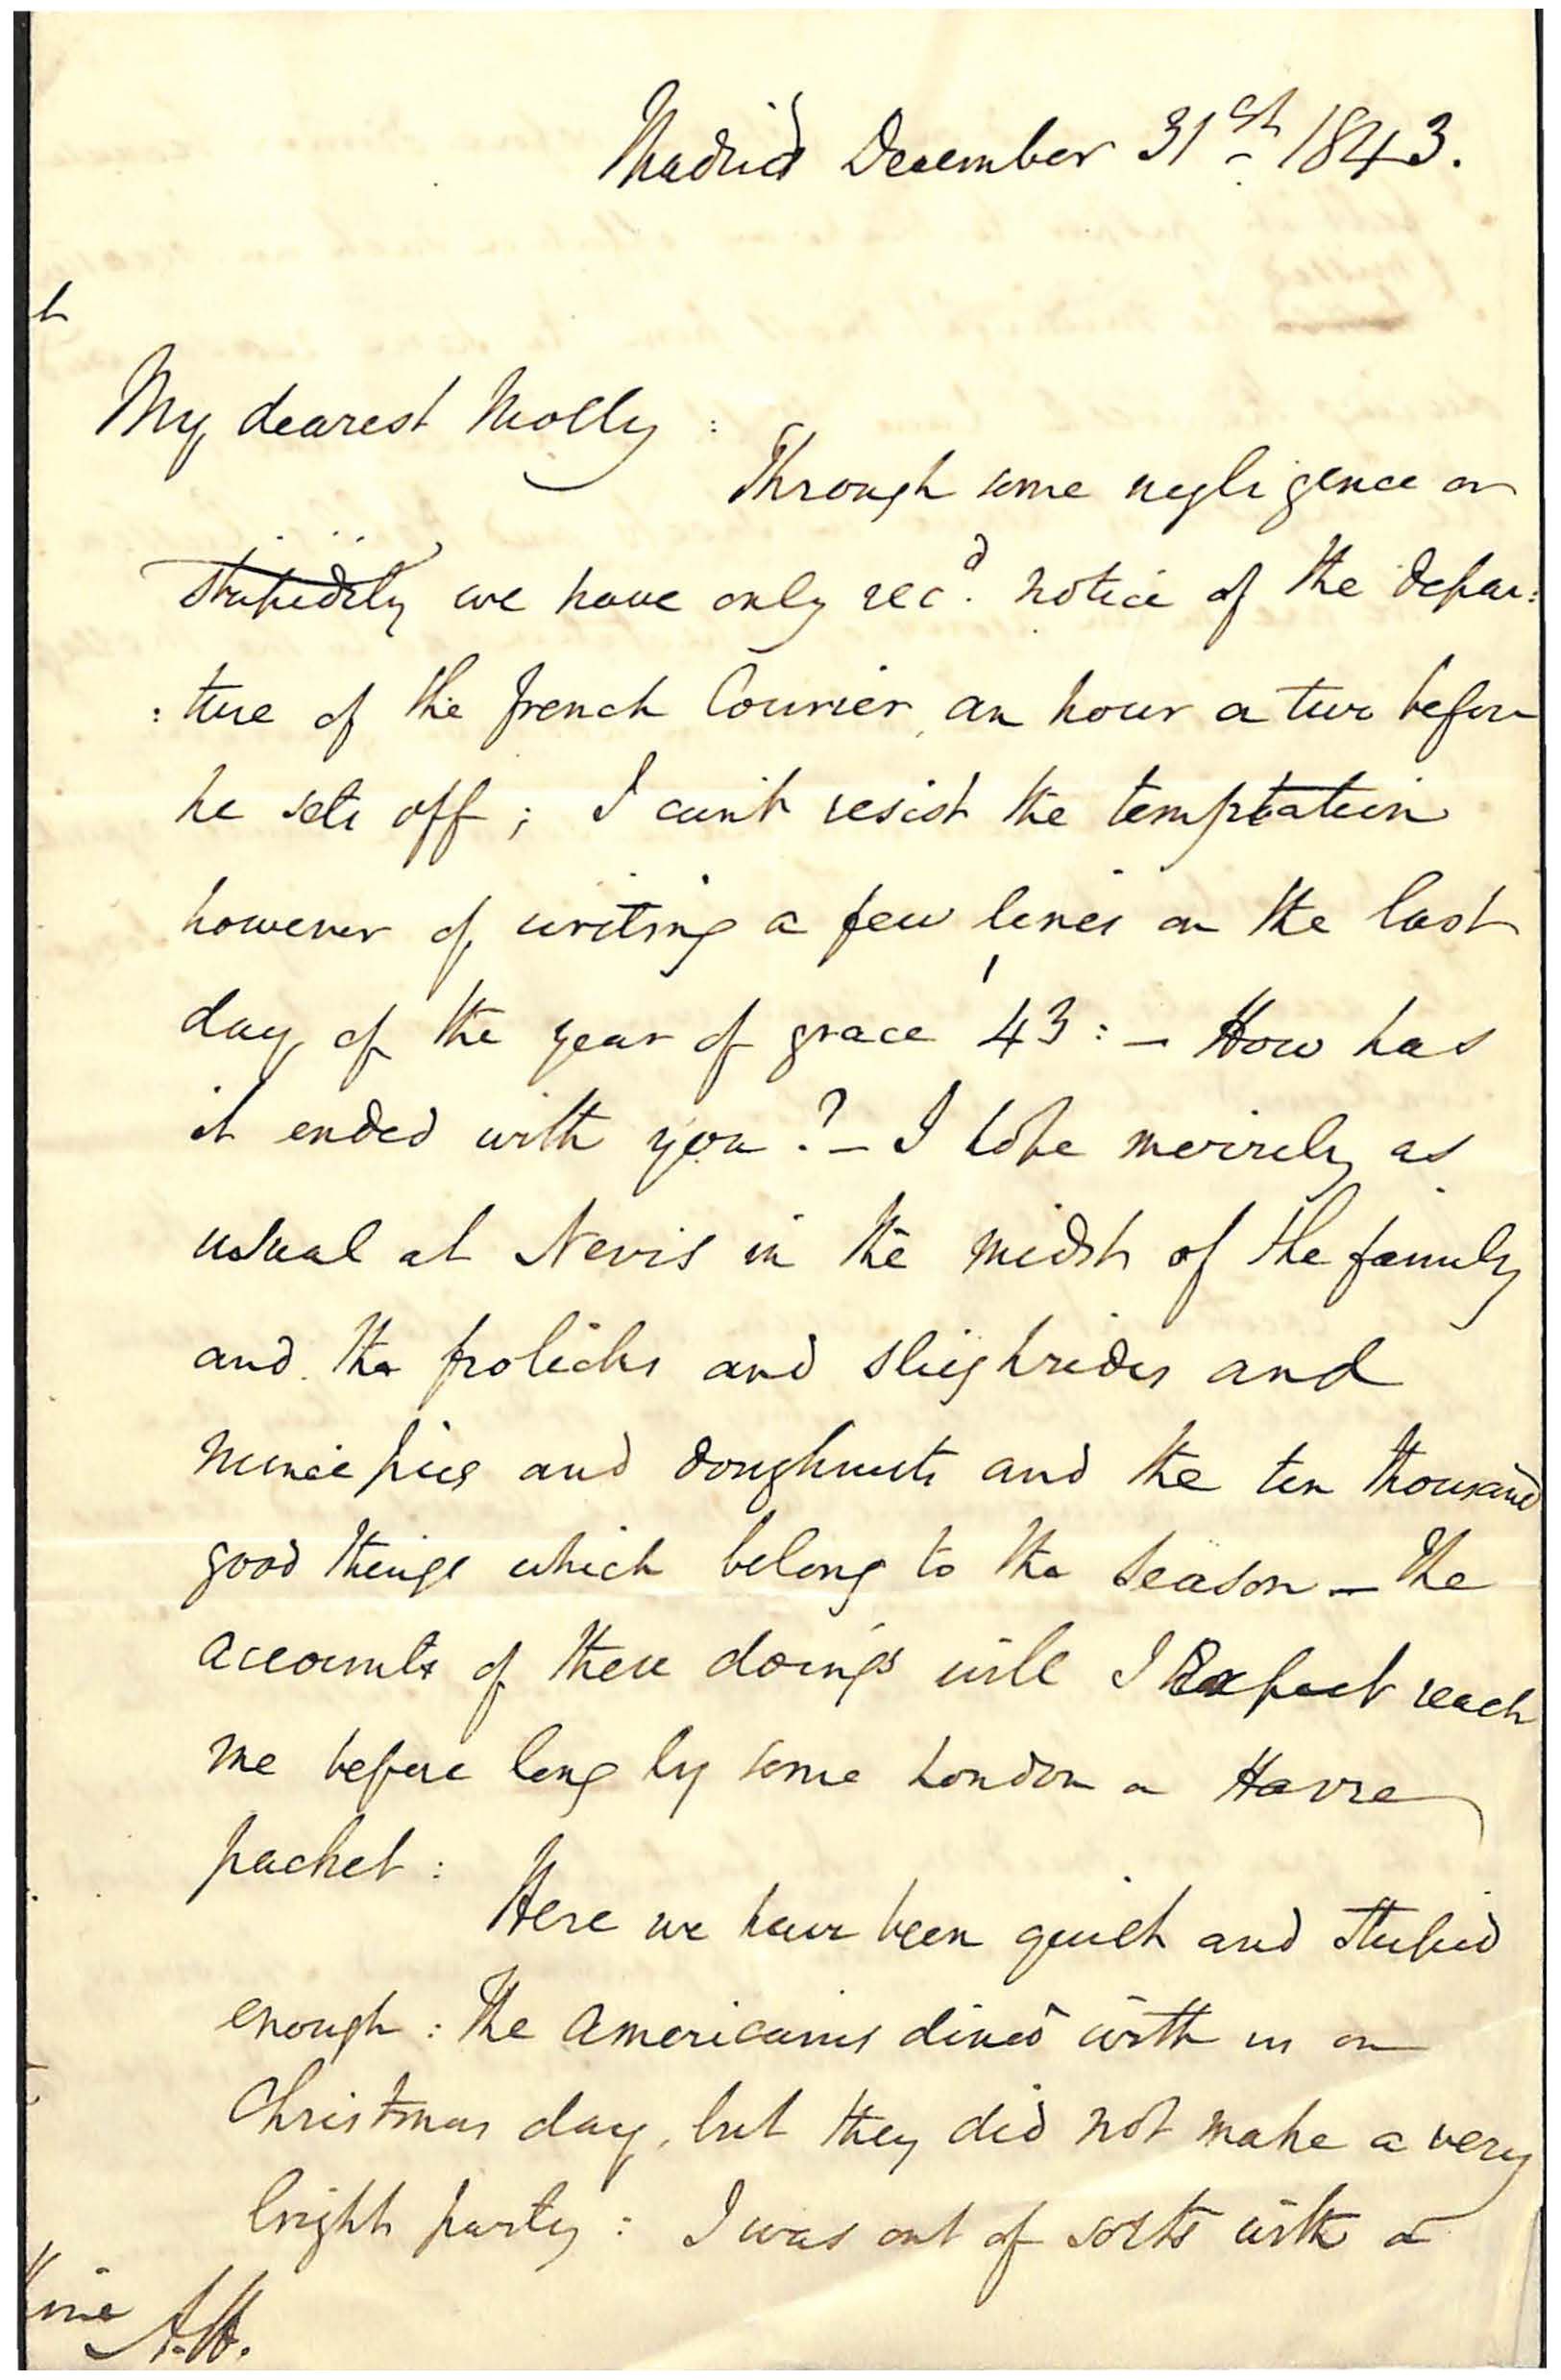 Madrid December 31st 1843.
My dearest Molly :
Through some negligence or
stupidity we have only recd. notice of the depar:
:ture of the french Courier, an hour or two before
he sets off ; I can't resist the temptation
however of writing a few lines on the last
day of the year of grace '43 : — How has
it ended with you ? — I hope merrily as
usual at Nevis in the midst of the family
and the frolicks and sleighrides and
mince pies and doughnuts and the ten thousand
good things which belong to the season — The
accounts of these doings will I Expect reach
me before long by some London or Havre
packet :
Here we have been quiet and stupid
enough : The Americans dined with us on
Christmas day, but they did not make a very
bright party : I was out of sorts with a
A.H.